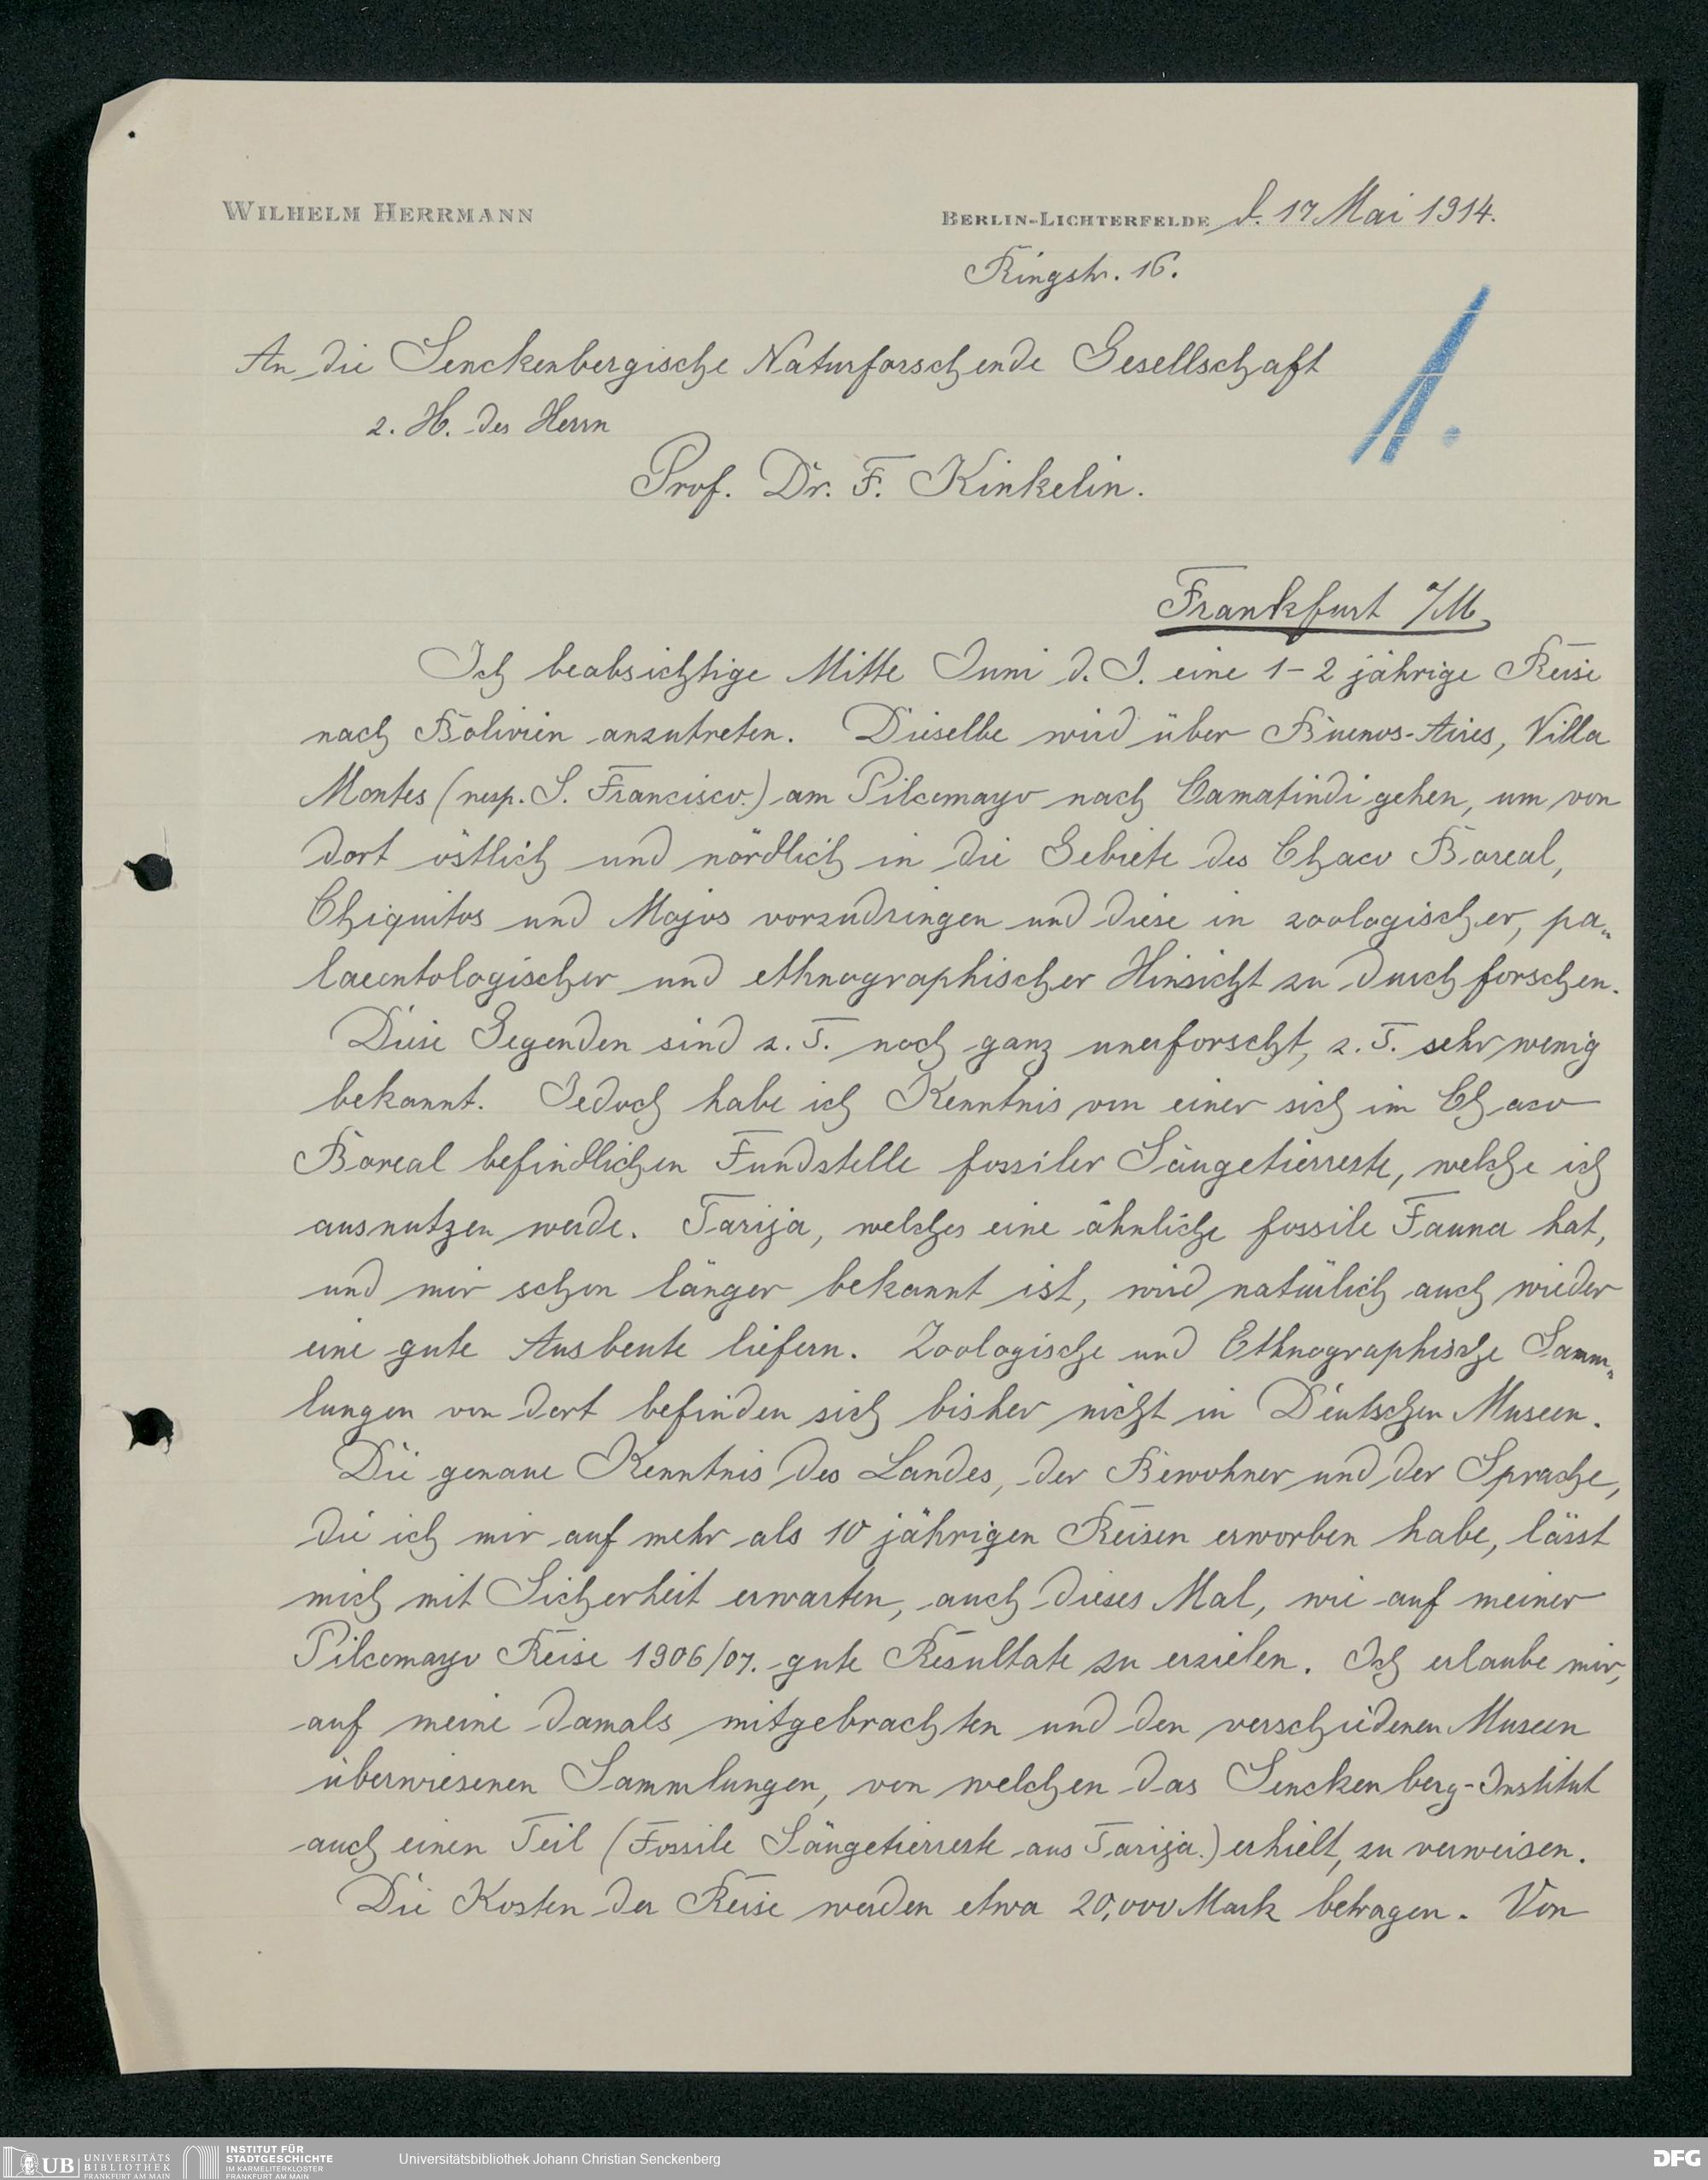 WILHELM HERRMANN
BERLIN-LICHTERFELDE d. 17 Mai 1914.
Ringstr. 16.
An die Senckenbergische Naturforschende Gesellschaft
z. H. des Herrn
Prof. Dr. F. Kinkelin.
Frankfurt a/M.
Ich beabsichtige Mitte Juni d. J. eine 1-2 jährige Reise
nach Bolivien anzutreten. Dieselbe wird über Buenos-Aires, Villa
Montes (resp. S. Francisco.) am Pilcomayo nach Camatindi gehen, um von
dort östlich und nördlich in die Gebiete des Chaco Boreal,
Chiquitos und Mojos vorzudringen und diese in zoologischer, pa„
laeontologischer und ethnographischer Hinsicht zu durchforschen.
Diese Gegenden sind z. T. noch ganz unerforscht, z. T. sehr wenig
bekannt. Jedoch habe ich Kenntnis von einer sich im Chaco
Boreal befindlichen Fundstelle fossiler Säugetierreste, welche ich
ausnutzen werde. Tarija, welches eine ähnliche fossile Fauna hat,
und mir schon länger bekannt ist, wird natürlich auch wieder
eine gute Ausbeute liefern. Zoologische und Ethnographische Samm„
lungen von dort befinden sich bisher nicht in Deutschen Museen.
Die genaue Kenntnis des Landes, der Bewohner und der Sprache,
die ich mir auf mehr als 10 jährigen Reisen erworben habe, lässt
mich mit Sicherheit erwarten, auch dieses Mal, wie auf meiner
Pilcomayo Reise 1906/07. gute Resultate zu erzielen. Ich erlaube mir,
auf meine damals mitgebrachten und den verschiedenen Museen
überwiesenen Sammlungen, von welchen das Senckenberg-Institut
auch einen Teil (Fossile Säugetierreste aus Tarija.) erhielt, zu verweisen.
Die Kosten der Reise werden etwa 20,000 Mark betragen. Von
UB UNIVERSITÄTS
BIBLIOTHEK
FRANKFURT AM MAIN
INSTITUT FÜR
STADTGESCHICHTE
IM KARMELITERKLOSTER
FRANKFURT AM MAIN
Universitätsbibliothek Johann Christian Senckenberg
DFG